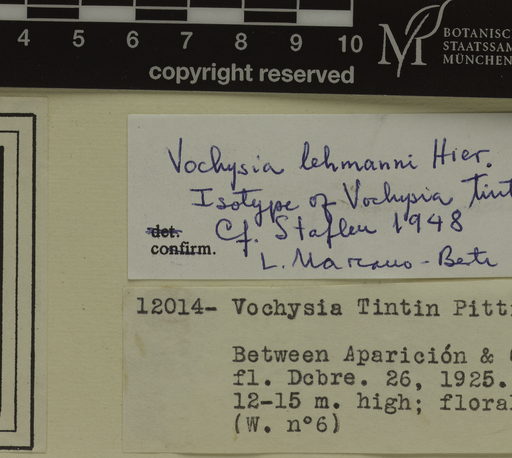 4 5 6 7 8 9 10
copyright reserved
M
BOTANISC
STAATSSAM
MÜNCHEN
Vochysia lehmanni Hier.
Isotype of Vochysia tint
Cf. Stafleu 1948
det.
confirm.
L. Marcano-Berti
12014- Vochysia Tintin Pitt
Between Aparición &
fl. Dcbre. 26, 1925.
12-15 m. high; floral
(W. nº6)